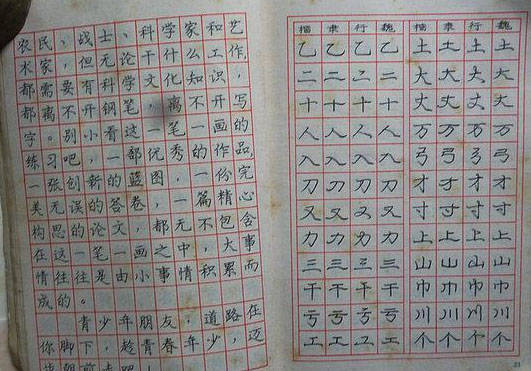 农民、战士、科学家和艺
术家，但无论干什么工作，
都需要有科学文化知识，
都离不开钢笔，离不开写
字。别小看这一笔一画的
练习吧，一部优秀的作品，
一张创新的蓝图，一份完
美无误的答卷，一篇精心
构思的论文，都无不包含
在这一笔一画之中，大事
情往往是由小事情积累而
成的。
青少年朋友，道路在
你脚下，趁青春年少，迈
步朝前走吧！
楷 隶 行 魏 楷 隶 行 魏
乙 乙 乙 乙 土 土 土 土
二 二 二 二 大 大 大 大
十 十 十 十 丈 丈 丈 丈
人 人 人 人 万 万 万 万
入 入 入 入 弓 弓 弓 弓
刀 刀 刀 刀 才 才 才 才
又 又 又 又 寸 寸 寸 寸
力 力 力 力 上 上 上 上
三 三 三 三 山 山 山 山
干 干 干 干 巾 巾 巾 巾
亏 亏 亏 亏 川 川 川 川
工 工 工 工 个 个 个 个